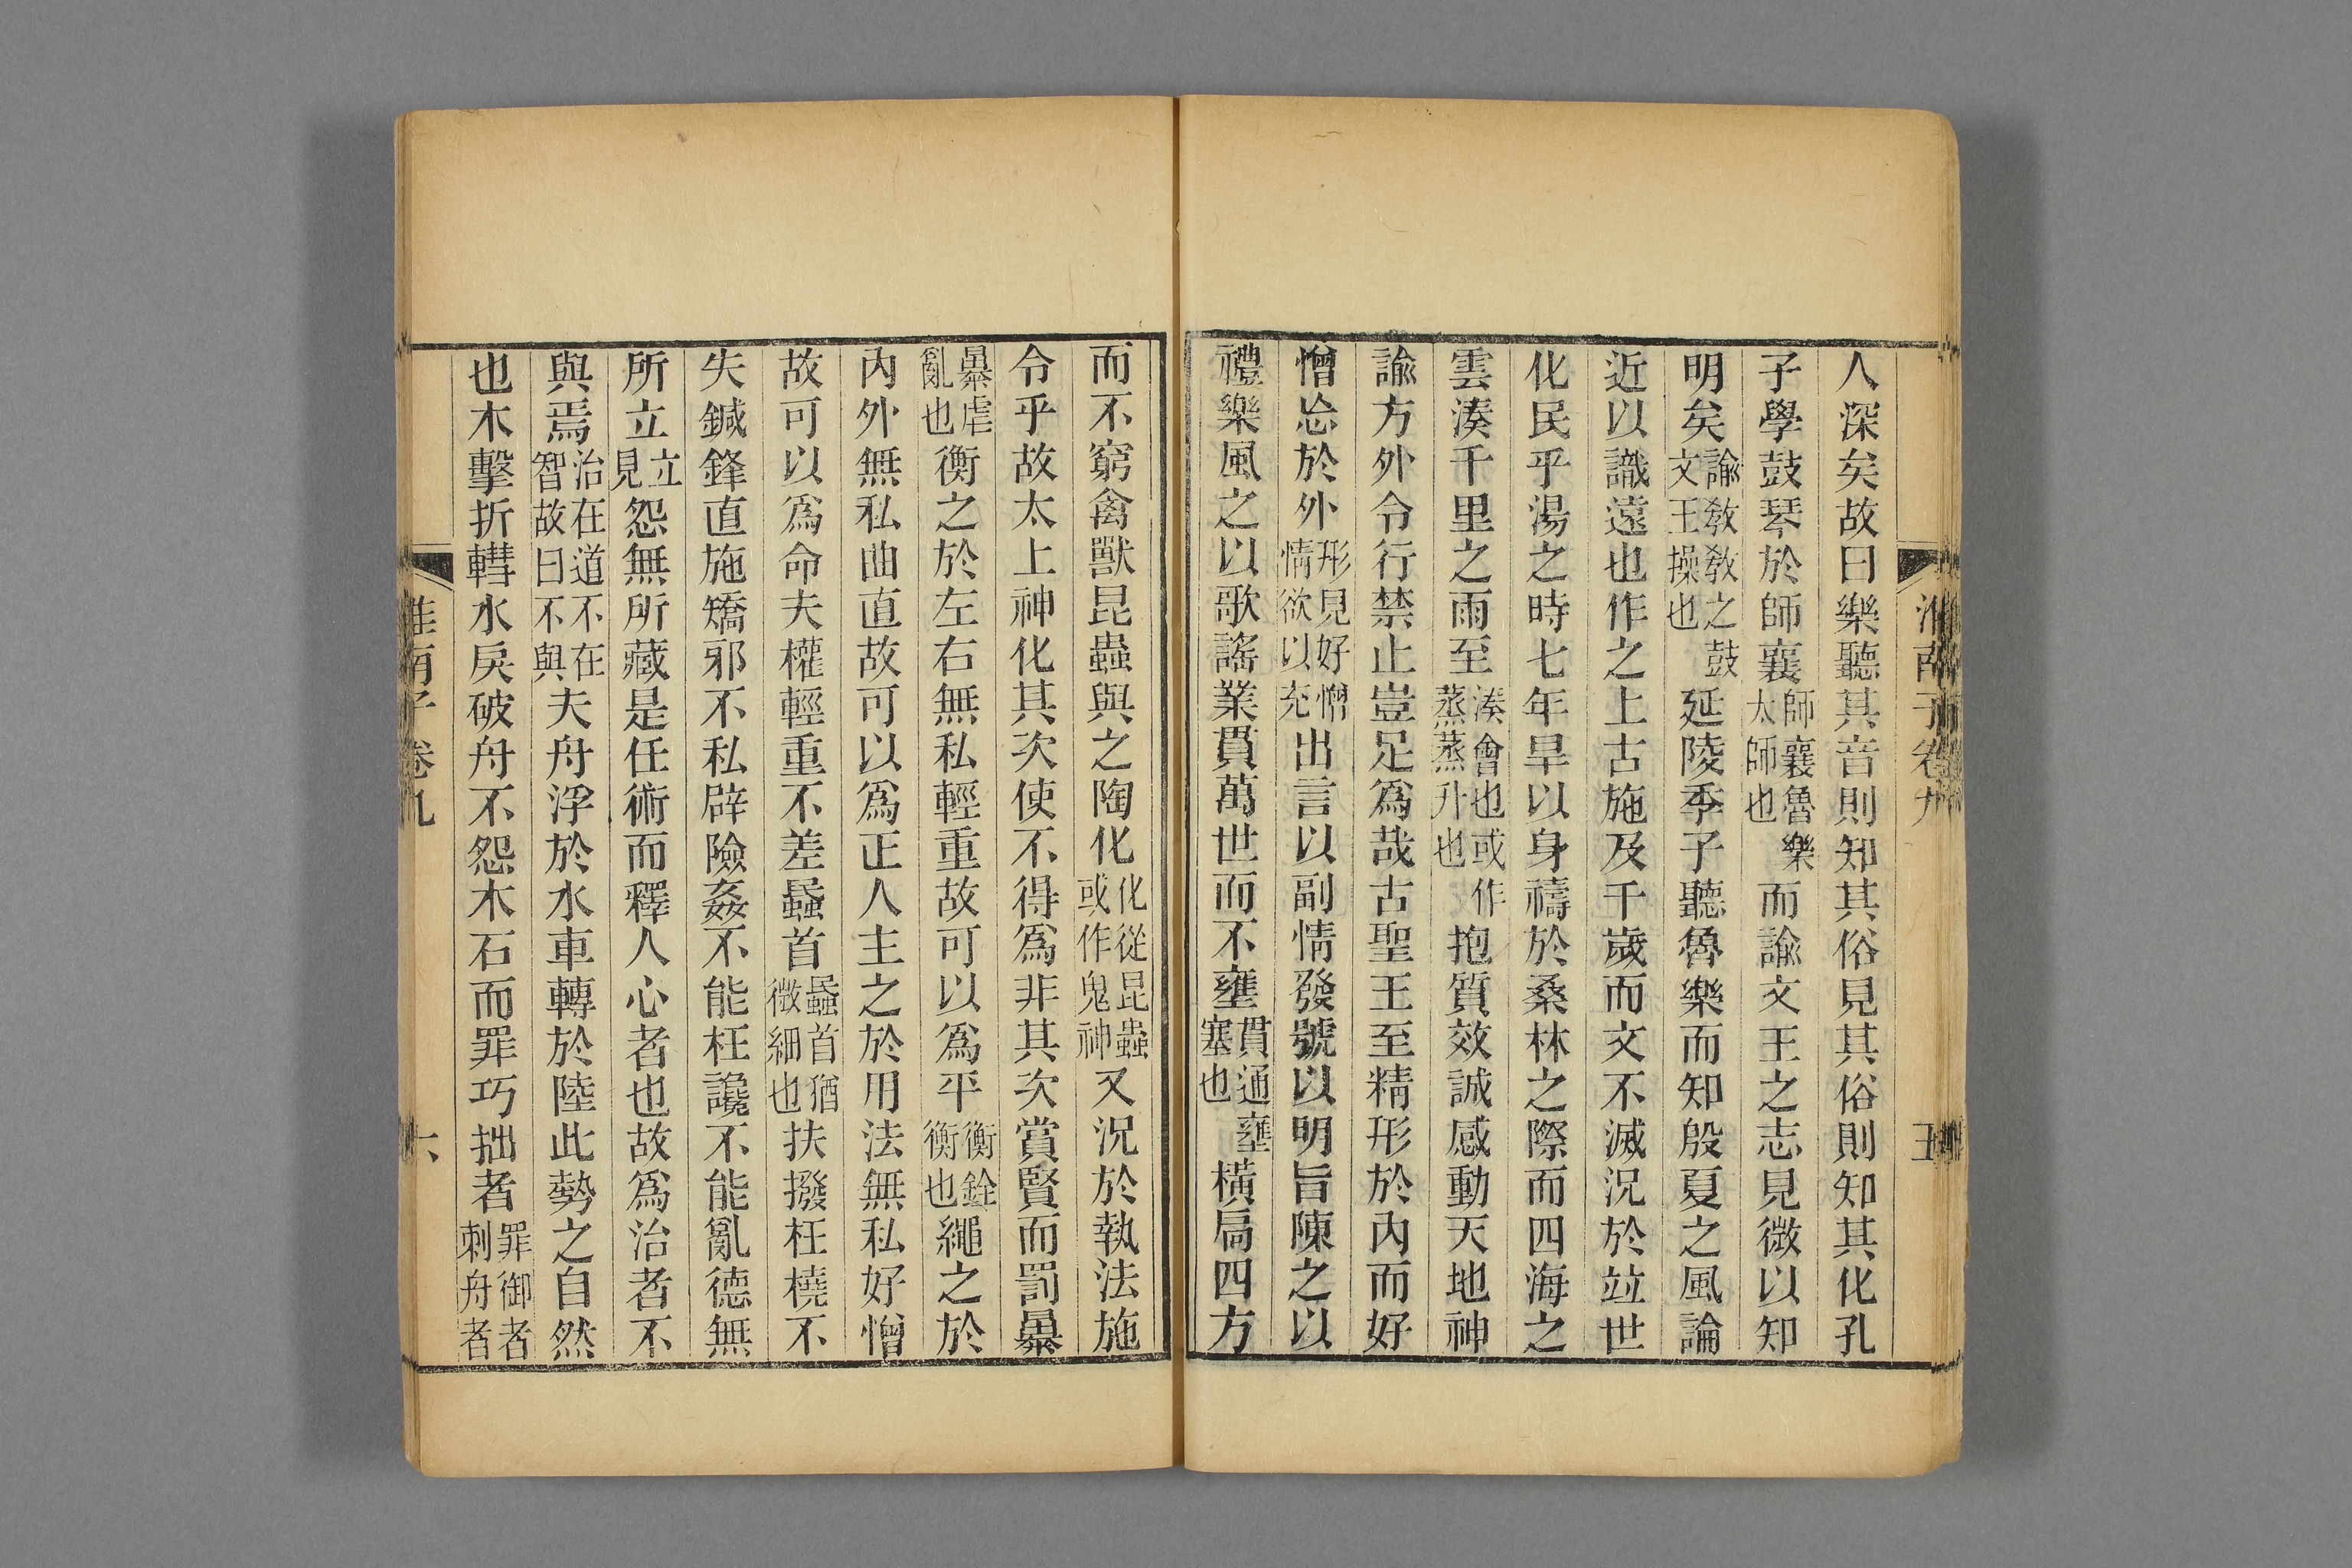 淮南子卷九 五
人深矣故曰樂聽其音則知其俗見其俗則知其化孔
子學鼓琴於師襄師襄魯樂太師也而諭文王之志見微以知
明矣諭教教之鼓文王操也延陵季子聽魯樂而知殷夏之風論
近以識遠也作之上古施及千歲而文不滅況於竝世
化民乎湯之時七年旱以身禱於桑林之際而四海之
雲湊千里之雨至湊會也或作蒸蒸升也抱質效誠感動天地神
諭方外令行禁止豈足爲哉古聖王至精形於內而好
憎忘於外形見好憎情欲以充出言以副情發號以明旨陳之以
禮樂風之以歌謠業貫萬世而不壅貫通壅塞也橫扃四方
而不窮禽獸昆蟲與之陶化化從昆蟲或作鬼神又況於執法施
令乎故太上神化其次使不得爲非其次賞賢而罰暴
暴虐亂也衡之於左右無私輕重故可以爲平衡銓衡也繩之於
內外無私曲直故可以爲正人主之於用法無私好憎
故可以爲命夫權輕重不差蟁首蟁首猶微細也扶撥枉橈不
失鍼鋒直施矯邪不私辟險姦不能枉讒不能亂德無
所立立見怨無所藏是任術而釋人心者也故爲治者不
與焉治在道不在智故曰不與夫舟浮於水車轉於陸此勢之自然
也木擊折轊水戾破舟不怨木石而罪巧拙者罪御者刺舟者
淮南子卷九 六